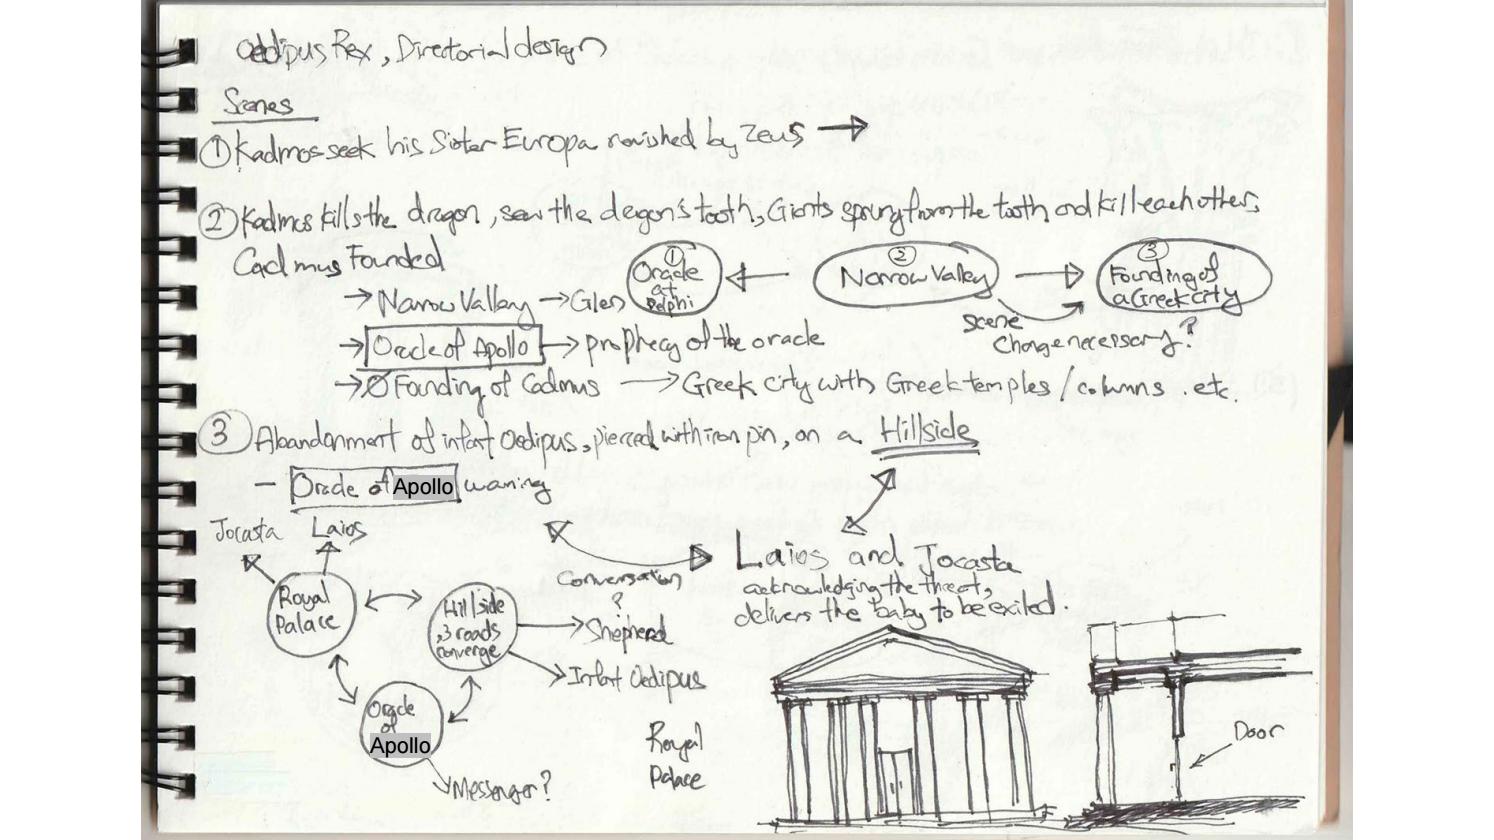 Oedipus Rex, Directorial design
Scenes
① Kadmos seek his Sister Europa ravished by Zeus →
② Kadmus kills the dragon, sew the dragon's tooth, Giants sprung from the tooth and kill each others
Cadmus Founded
→ Narrow Valley → Glen
→ Oracle of Apollo → prophecy of the oracle
→ Founding of Cadmus → Greek city with Greek temples / columns . etc.
①
Oracle
at
Delphi
②
Narrow Valley
③
Founding of
a Greek city
scene
change necessary?
③ Abandonment of infant Oedipus, pierced with iron pin, on a Hillside
- Oracle of Apollo warning
Jocasta Laios
Royal
Palace
Hillside
,3 roads
converge
Oracle
of
Apollo
Messenger?
Shepherd
Infant Oedipus
Conversation
?
Laios and Jocasta
acknowledging the threat,
delivers the baby to be exiled.
Royal
Palace
Door